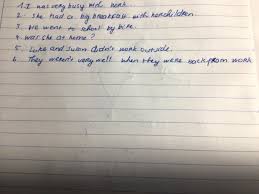 1. I was very busy with work.
2. She had a big breakfast with her children.
3. We went to school by bike.
4. Was she at home?
5. Luke and Susan didn't work outside.
6. They weren't very well when they were back from work